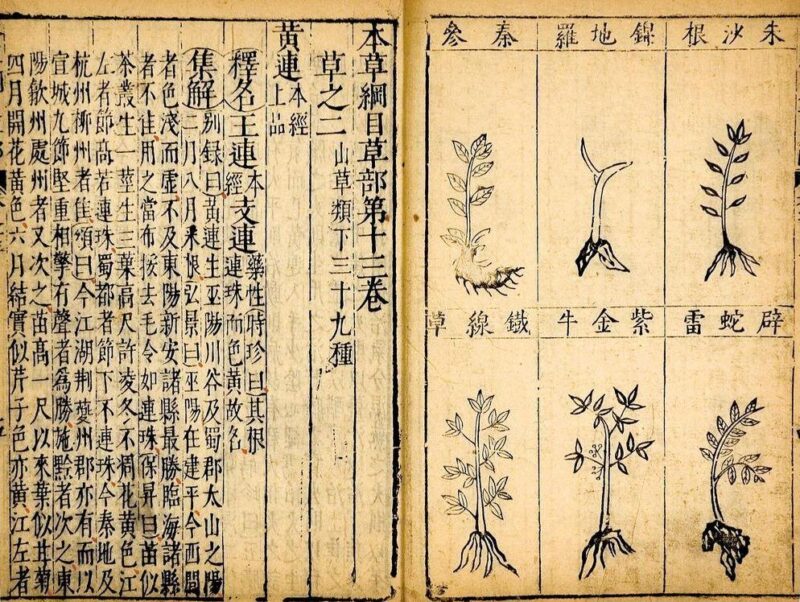 朱沙根
錦地羅
秦參
辟蛇雷
紫金牛
鐵線草
本草綱目草部第十三卷
草之二 山草類下三十九種
黃連 本經上品
釋名 王連 本經 支連 藥性時珍曰其根連珠而色黃故名
集解 別錄曰黃連生巫陽川谷及蜀郡太山之陽
二月八月采根弘景曰巫陽在建平今西間
者色淺而虛不及東陽新安諸縣最勝臨海諸縣
者不佳用之當布挼去毛令如連珠保昇曰苗似
茶叢生一莖生三葉高尺許凌冬不凋花黃色江
左者節高若連珠蜀都者節下不連珠今秦地及
杭州柳州者佳頌曰今江湖荊夔州郡亦有而以
宣城九節堅重相擊有聲者爲勝施黔者次之東
陽歙州處州者又次之苗高一尺以來葉似甘菊
四月開花黃色六月結實似芹子色亦黃江左者